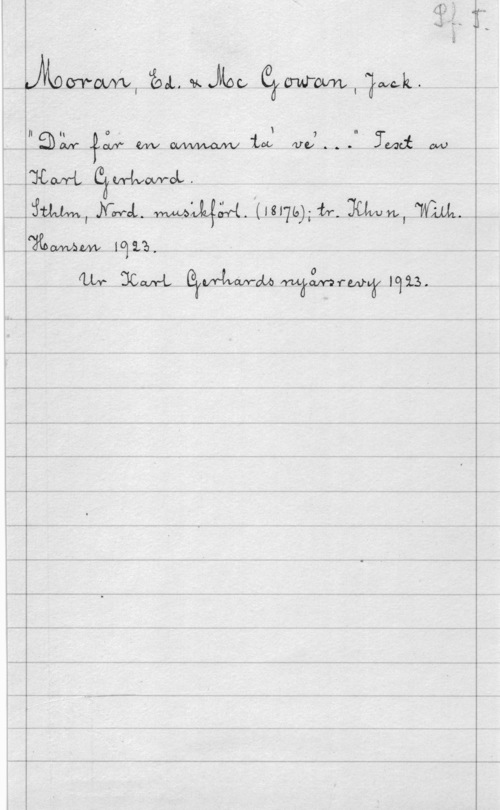 Pf. 5.
Moran, Ed. & Mc Gowan, Jack.
"Där får en annan ta' ve'..." Text av
Karl Gerhard.
Sthlm, Nord. musikförl. (18176); tr. Khvn, Wilh.
Hansen 1923.
Ur Karl Gerhards nyårsrevy 1923.